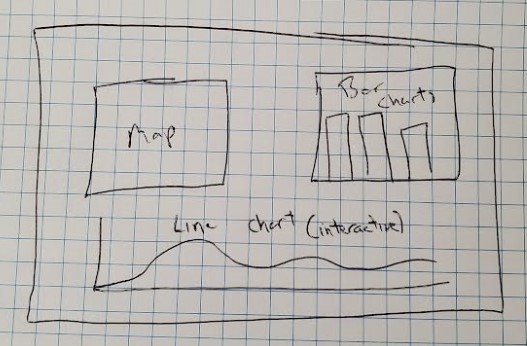 Map
Bar
charts
Line chart (interactive)